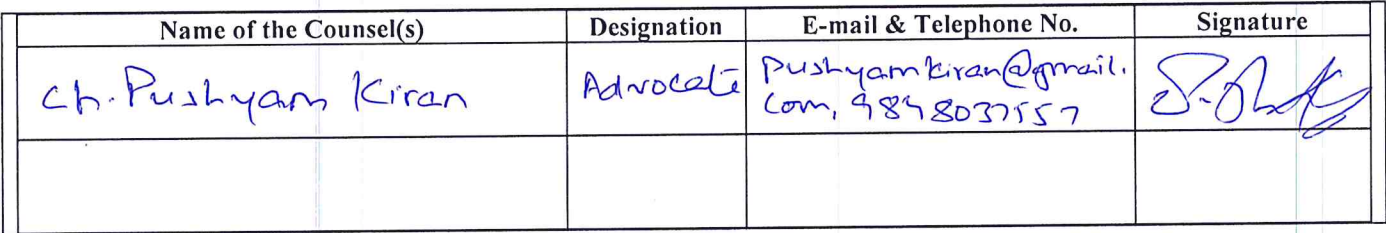 Name of the Counsel(s) Designation E-mail & Telephone No. Signature
Ch. Pushyam Kiran Advocate Pushyamkiran@gmail.
com, 9848037557